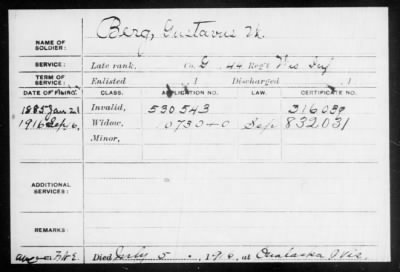 Berg, Gustavus M.
NAME OF SOLDIER:
SERVICE: Late rank, Co. G, 44 Reg't Wis Inf
TERM OF SERVICE: Enlisted 1 Discharged 1
DATE OF FILING. CLASS. APPLICATION NO. LAW. CERTIFICATE NO.
1885 Jan 21 Invalid, 530543
1916 Sep 6, Widow, Sep 832031
Minor,
ADDITIONAL SERVICES:
REMARKS:
Died July 5, 191 at Onalaska Wis.